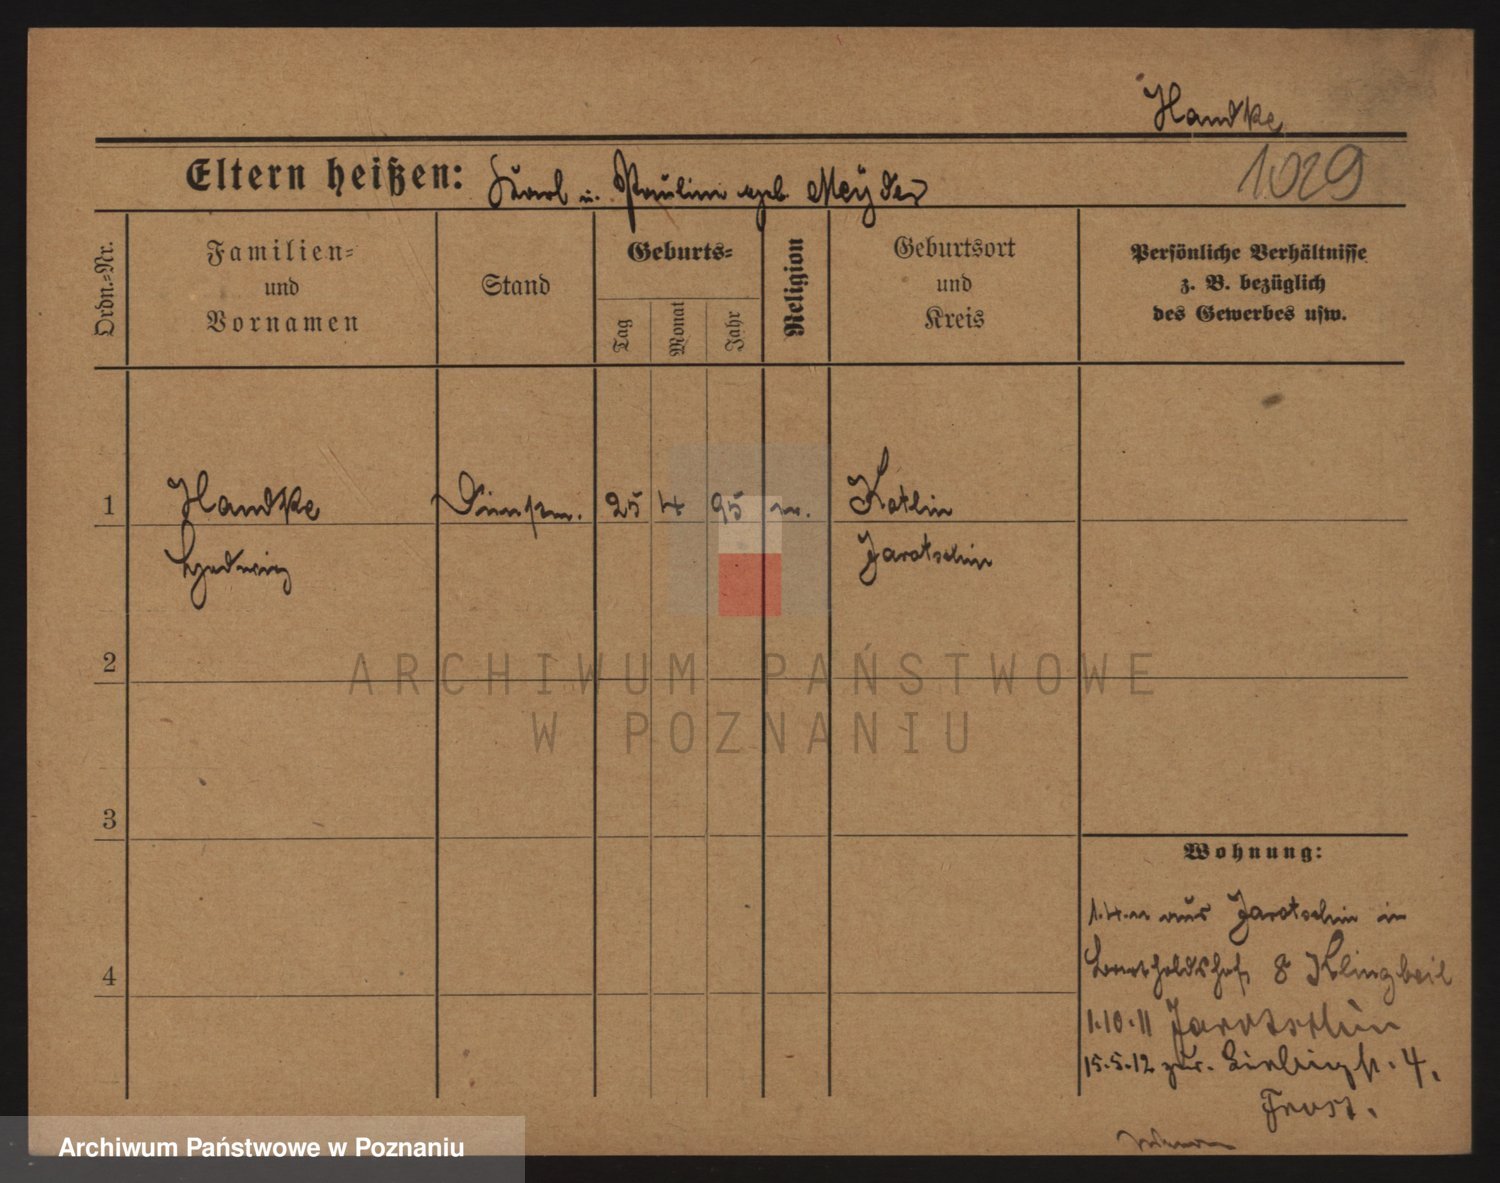 Handke
Eltern heißen: Karl u. Pauline geb Meyder
1029
Ordn.-Nr.
Familien-
und
Vornamen
Stand
Geburts-
Tag
Monat
Jahr
Religion
Geburtsort
und
Kreis
Persönliche Verhältnisse
z. B. bezüglich
des Gewerbes usw.
1 Handke 25 4 95 Kotlin
Hedwig Jarotschin
2
ARCHIWUM PAŃSTWOWE
W POZNANIU
3
Wohnung:
1.4.11 aus Jarotschin in
4
8 Klingbeil
1.10.11 Jarotschin
15.5.12 zur. 4.
Archiwum Państwowe w Poznaniu